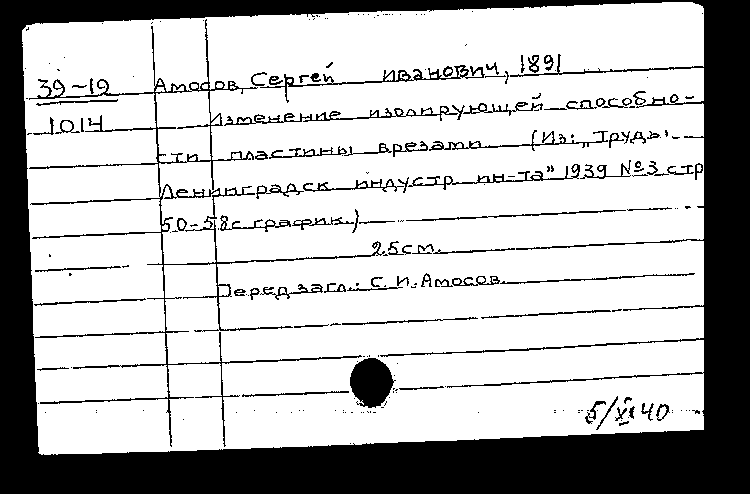 39-19 Амосов, Сергей Иванович, 1891
1014 Изменение изолирующей способно-
сти пластины врезами (Из: „Труды
Ленинградск индустр ин-та" 1939 №3 стр
50-58с график.)
25см.
Перед загл.: С. И. Амосов.
5/XI 40